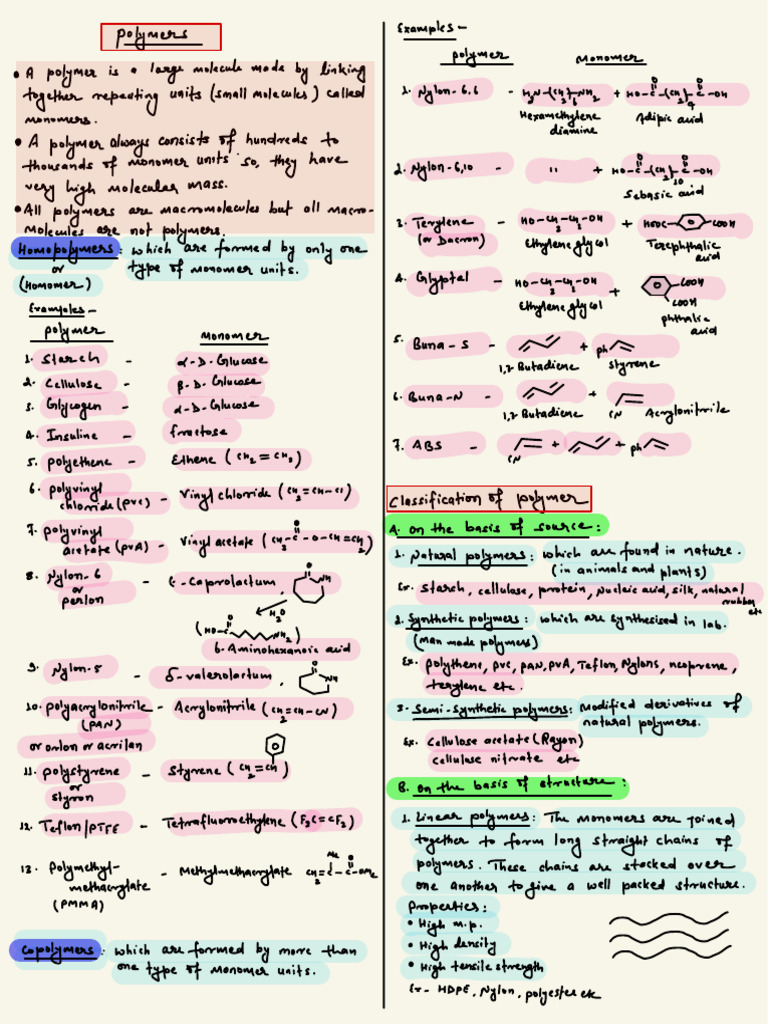 Polymers
• A polymer is a large molecule made by linking
together repeating units (small molecules) called
monomers.
• A polymer always consists of hundreds to
thousands of monomer units so, they have
very high molecular mass.
• All polymers are macromolecules but all macro-
molecules are not polymers.
Homopolymers : which are formed by only one
or type of monomer units.
(Homomer)
Examples -
polymer Monomer
1. Starch - α-D-Glucose
2. Cellulose - β-D-Glucose
3. Glycogen - α-D-Glucose
4. Insuline - fructose
5. polyethene - Ethene (CH2=CH2)
6. polyvinyl
chloride (PVC) - Vinyl chloride (CH2=CH-Cl)
7. polyvinyl
acetate (PVA) - Vinyl acetate (CH3-C-O-CH=CH2)
O
8. Nylon-6 - ε-Caprolactum, O NH
or
perlon
H2O
(HO-C NH2)
O
6-Aminohexanoic acid
9. Nylon-5 - δ-valerolactum, O NH
10. polyacrylonitrile - Acrylonitrile (CH2=CH-CN)
(PAN)
or orlon or acrilan
11. polystyrene - Styrene (CH2=CH)
or
styron
12. Teflon/PTFE - Tetrafluoroethylene (F2C=CF2)
13. Polymethyl- - Methylmethacrylate CH2=C-C-OMe
methacrylate Me O
(PMMA)
Copolymers : which are formed by more than
one type of monomer units.
Examples -
polymer Monomer
1. Nylon-6,6 - H2N-(CH2)6-NH2 + HO-C-(CH2)4-C-OH
O O
Hexamethylene Adipic acid
diamine
2. Nylon-6,10 - " + HO-C-(CH2)10-C-OH
O O
Sebasic acid
3. Terylene - HO-CH2-CH2-OH + HOOC- -COOH
(or Dacron) Ethylene glycol Terephthalic
acid
4. Glyptal - HO-CH2-CH2-OH + COOH
Ethylene glycol COOH
phthalic
acid
5. Buna-S - + ph
1,3 Butadiene styrene
6. Buna-N - + CN
1,3 Butadiene Acrylonitrile
7. ABS - CN + + ph
Classification of polymer
A. on the basis of source :
1. Natural polymers : which are found in nature.
(in animals and plants)
Ex. starch, cellulose, protein, Nucleic acid, silk, natural
rubber etc
2. Synthetic polymers : which are synthesised in lab.
(man made polymers)
Ex. polythene, PVC, PAN, PVA, Teflon, Nylons, neoprene,
terylene etc.
3. Semi-synthetic polymers: modified derivatives of
natural polymers.
Ex. cellulose acetate (Rayon)
cellulose nitrate etc
B. on the basis of structure :
1. Linear polymers : The monomers are joined
together to form long straight chains of
polymers. These chains are stacked over
one another to give a well packed structure.
properties :
• High m.p.
• High density
• High tensile strength
Ex- HDPE, Nylon, polyester etc